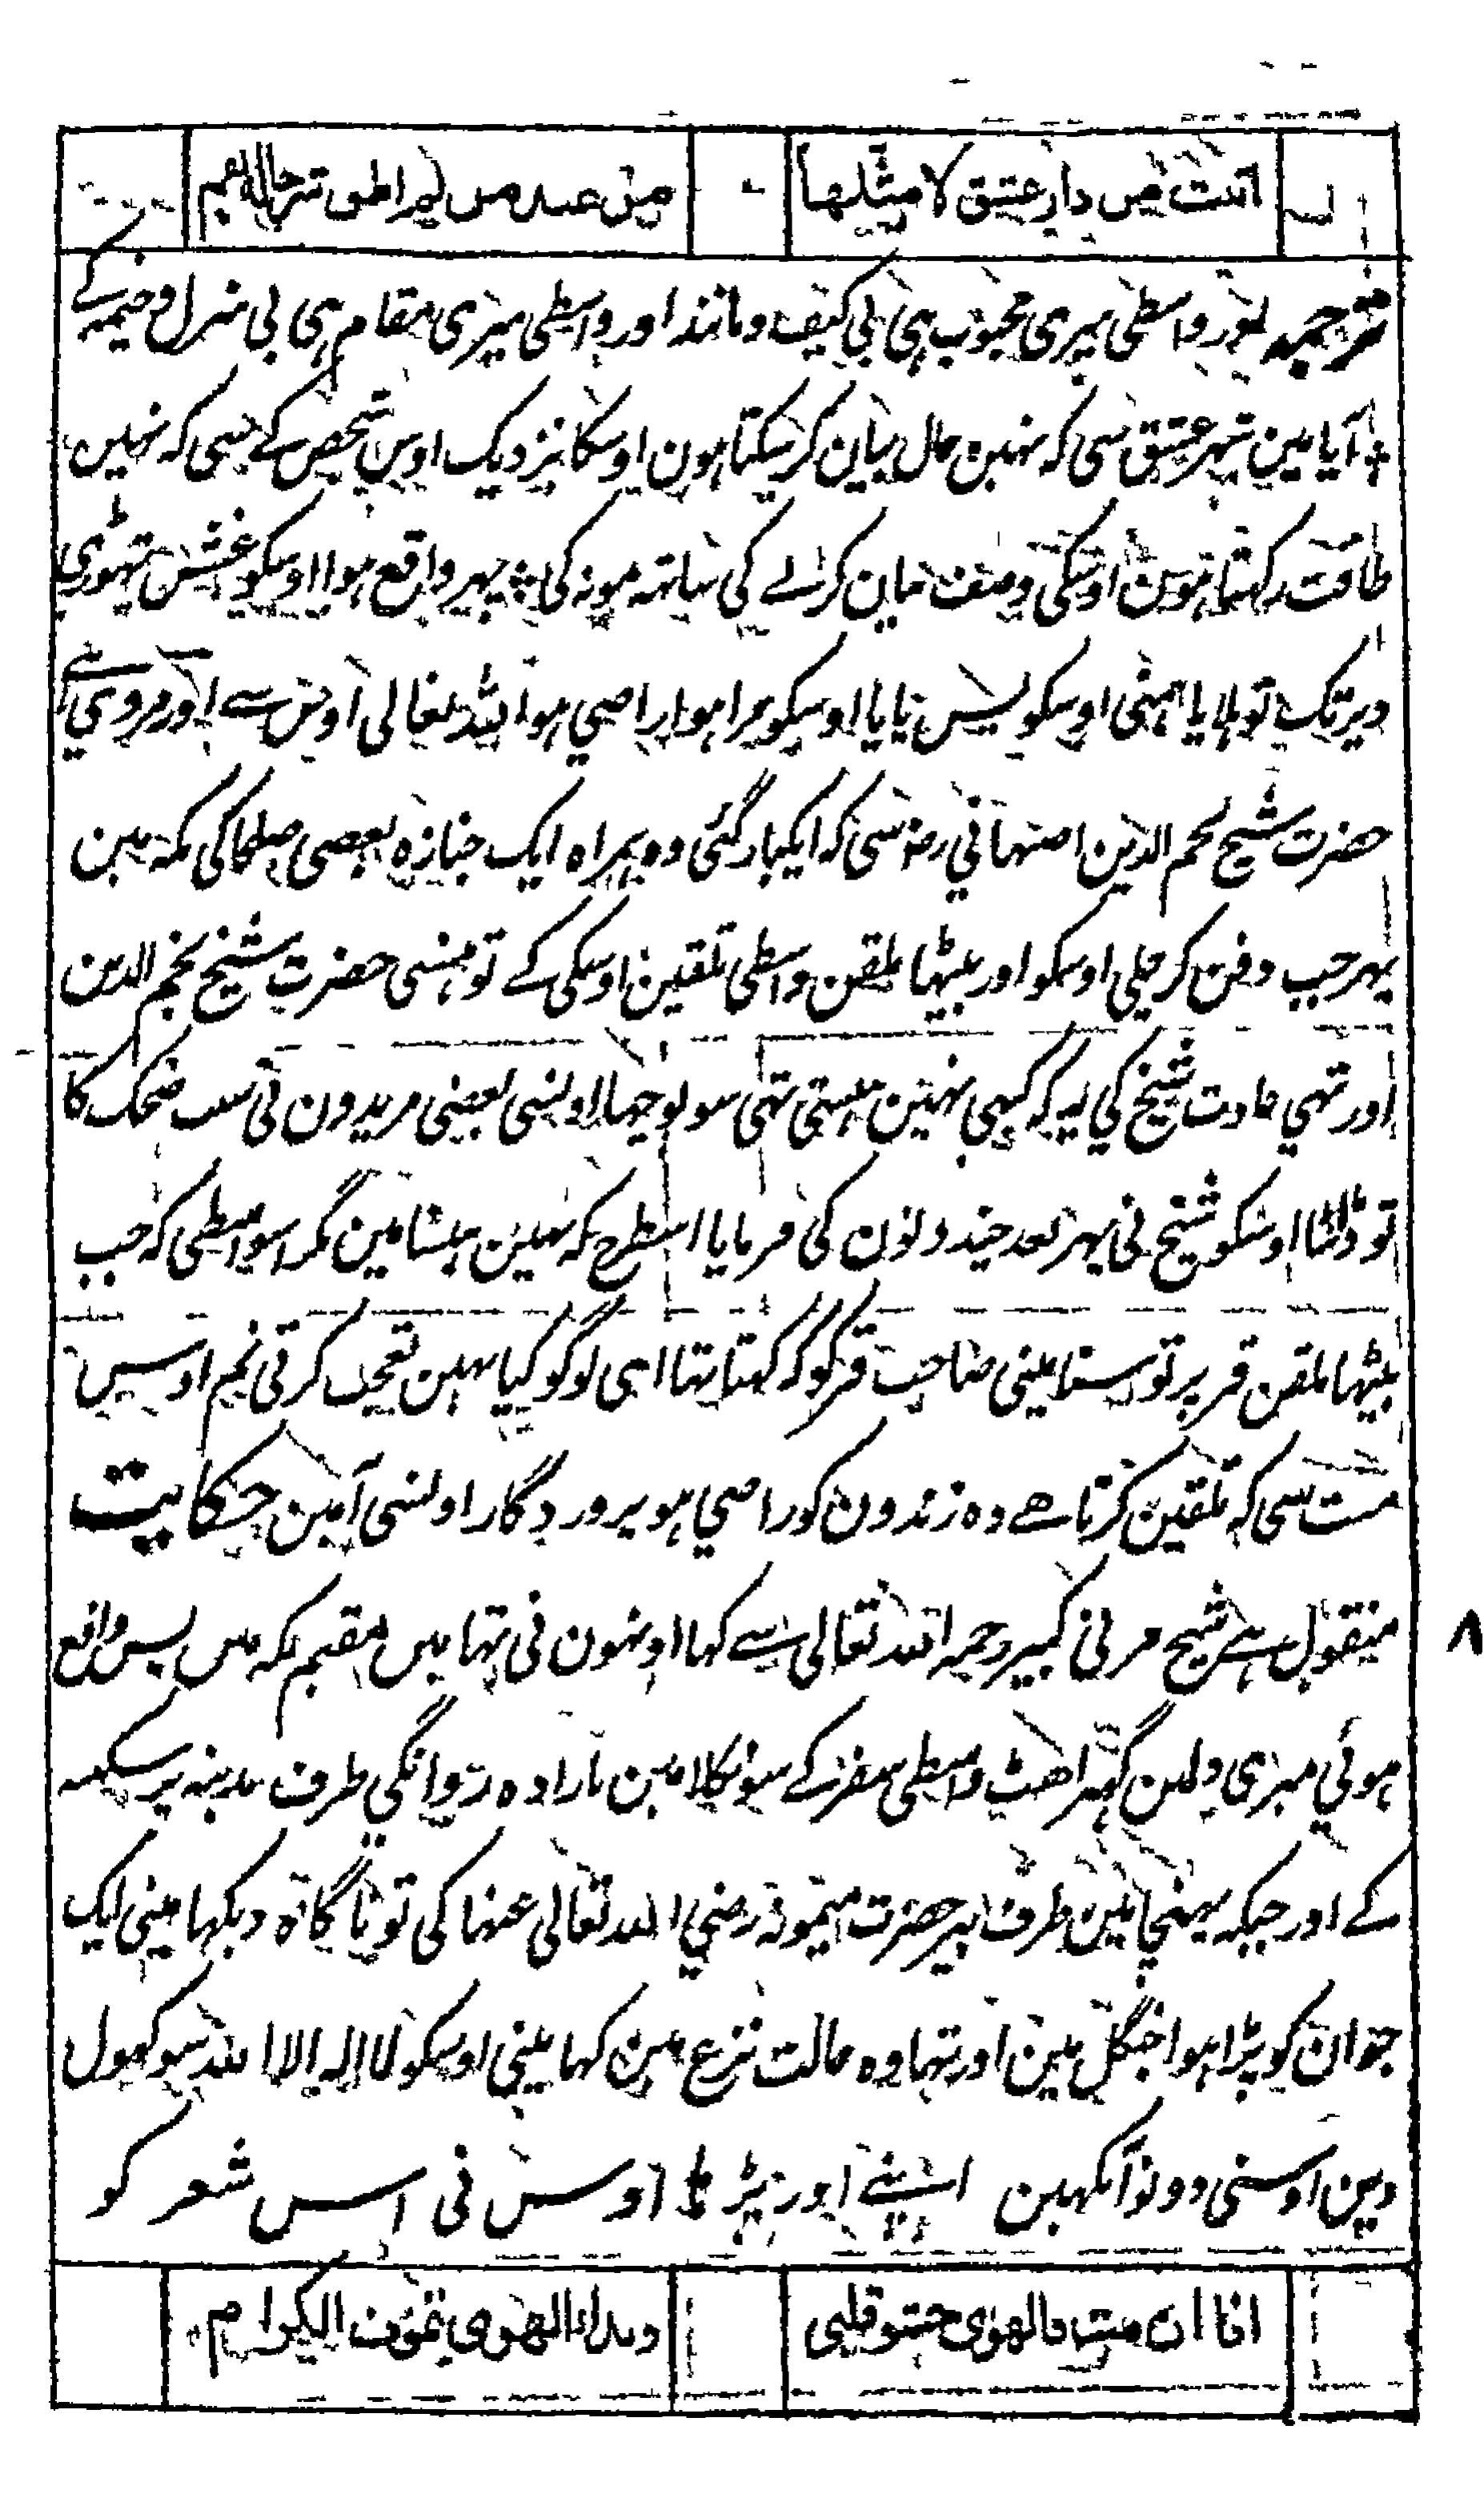 اتیت من دار عشق لا مثلها من عند من لم اطق ترجالهم
ترجمہ اور واسطی میری محبوب ہی بی کیف و مانند اور واسطی میری مقام ہی بی منزل و خیمہ کے
آیا مین شہر عشق سی کہ نہین حال بیان کر سکتا ہون اوسکا نزدیک اوس شخص کے سی کہ نہین
طاقت رکہتا ہون اوسکی وصف بیان کرنے کی ساتہ مونہ کی پہر واقع ہوا اوسکو غش تہوڑی
دیر تک تو ہلایا ہمنی اوسکو پس پایا اوسکو مرا ہوا راضی ہو اللہ تعالی اوس سے اور مروی ہے
حضرت شیخ نجم الدین اصفہانی رضہ سی کہ ایکبار گئی وہ ہمراہ ایک جنازہ بعضی صلحا کی مکہ مین
پہر جب دفن کر چلی اوسکو اور بیٹہا ملقن واسطی تلقین اوسکی کے تو ہنسی حضرت شیخ نجم الدین
اور تہی عادت شیخ کی یہ کہ کبہی نہین ہنستی تہی سو پوچہا اونسی بعضی مریدون نی سبب ضحک کا
تو ڈانٹا اوسکو شیخ نی پہر بعد چند دنون کی فرمایا اسطرح کہ نہین ہنسا مین مگر اسواسطی کہ جب
بیٹہا ملقن قبر پر تو سنا مینی صاحب قبر کو کہ کہتا تہا ای لوگو کیا نہین تعجب کرتی تم اوس
میت سی کہ تلقین کرتا ہے وہ زندون کو راضی ہو پروردگار اونسی آمین حکایت
منقول ہے شیخ مزنی کبیر رحمہ اللہ تعالی سے کہا اونہون نی تہا میں مقیم مکہ میں پس واقع
ہوئی میری دلمین گہبراہٹ واسطی سفر کے سو نکلا مین بارادہ روانگی طرف مدینہ پر سکینہ
کے اور جبکہ پہنچا مین طرف بیر حضرت میمونہ رضی اللہ تعالی عنہا کی تو ناگاہ دیکہا مینی ایک
جوان کو پڑا ہوا جنگل مین اور تہا وہ حالت نزع مین کہا مینی اوسکو لا الہ الا اللہ سو کہول
دین اوسنی دونو آنکہین اپنے اور پڑہا اوس نی اس شعر کو
انا ان مت فالهوی حشو قلبی وبداء الهوی یموت الکرام
۸